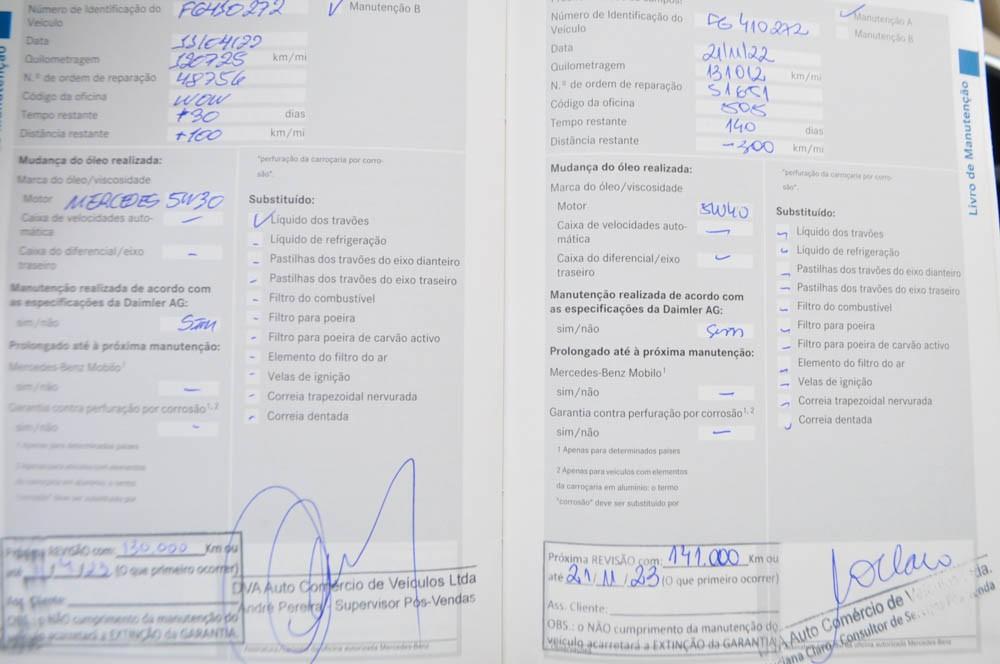 Número de Identificação do
Veículo
FG410272
Manutenção B
Data
Quilometragem
120725
km/mi
N.º de ordem de reparação
48756
Código da oficina
WOW
Tempo restante
+30
dias
Distância restante
+100
km/mi
Mudança do óleo realizada:
Marca do óleo/viscosidade
Motor
MERCEDES 5W30
Caixa de velocidades auto-
mática
Caixa do diferencial/eixo
traseiro
Manutenção realizada de acordo com
as especificações da Daimler AG:
sim/não
Sim
Prolongado até à próxima manutenção:
Mercedes-Benz Mobilo¹
sim/não
Garantia contra perfuração por corrosão¹,²
sim/não
¹ Apenas para determinados países
² Apenas para veículos com elementos
da carroçaria em alumínio: o termo
"corrosão" deve ser substituído por
"perfuração da carroçaria por corro-
são".
Substituído:
Líquido dos travões
Líquido de refrigeração
Pastilhas dos travões do eixo dianteiro
Pastilhas dos travões do eixo traseiro
Filtro do combustível
Filtro para poeira
Filtro para poeira de carvão activo
Elemento do filtro do ar
Velas de ignição
Correia trapezoidal nervurada
Correia dentada
Próxima REVISÃO com: 130.000 Km ou
até (O que primeiro ocorrer)
Ass. Cliente:
OBS.: o NÃO cumprimento da manutenção do
veículo acarretará a EXTINÇÃO da GARANTIA.
DVA Auto Comércio de Veículos Ltda
André Pereira - Supervisor Pós-Vendas
Número de Identificação do
Veículo
FG410272
Manutenção A
Manutenção B
Data
21/11/22
Quilometragem
131012
km/mi
N.º de ordem de reparação
51651
Código da oficina
505
Tempo restante
140
dias
Distância restante
-300
km/mi
Mudança do óleo realizada:
Marca do óleo/viscosidade
Motor
5W40
Caixa de velocidades auto-
mática
Caixa do diferencial/eixo
traseiro
Manutenção realizada de acordo com
as especificações da Daimler AG:
sim/não
Sim
Prolongado até à próxima manutenção:
Mercedes-Benz Mobilo¹
sim/não
Garantia contra perfuração por corrosão¹,²
sim/não
1 Apenas para determinados países
2 Apenas para veículos com elementos
da carroçaria em alumínio: o termo
"corrosão" deve ser substituído por
"perfuração da carroçaria por corro-
são".
Substituído:
Líquido dos travões
Líquido de refrigeração
Pastilhas dos travões do eixo dianteiro
Pastilhas dos travões do eixo traseiro
Filtro do combustível
Filtro para poeira
Filtro para poeira de carvão activo
Elemento do filtro do ar
Velas de ignição
Correia trapezoidal nervurada
Correia dentada
Próxima REVISÃO com: 141.000 Km ou
até 21/11/23 (O que primeiro ocorrer)
Ass. Cliente:
OBS.: o NÃO cumprimento da manutenção do
veículo acarretará a EXTINÇÃO da GARANTIA
Auto Comércio de
Claro - Consultor de
Livro de Manutenção